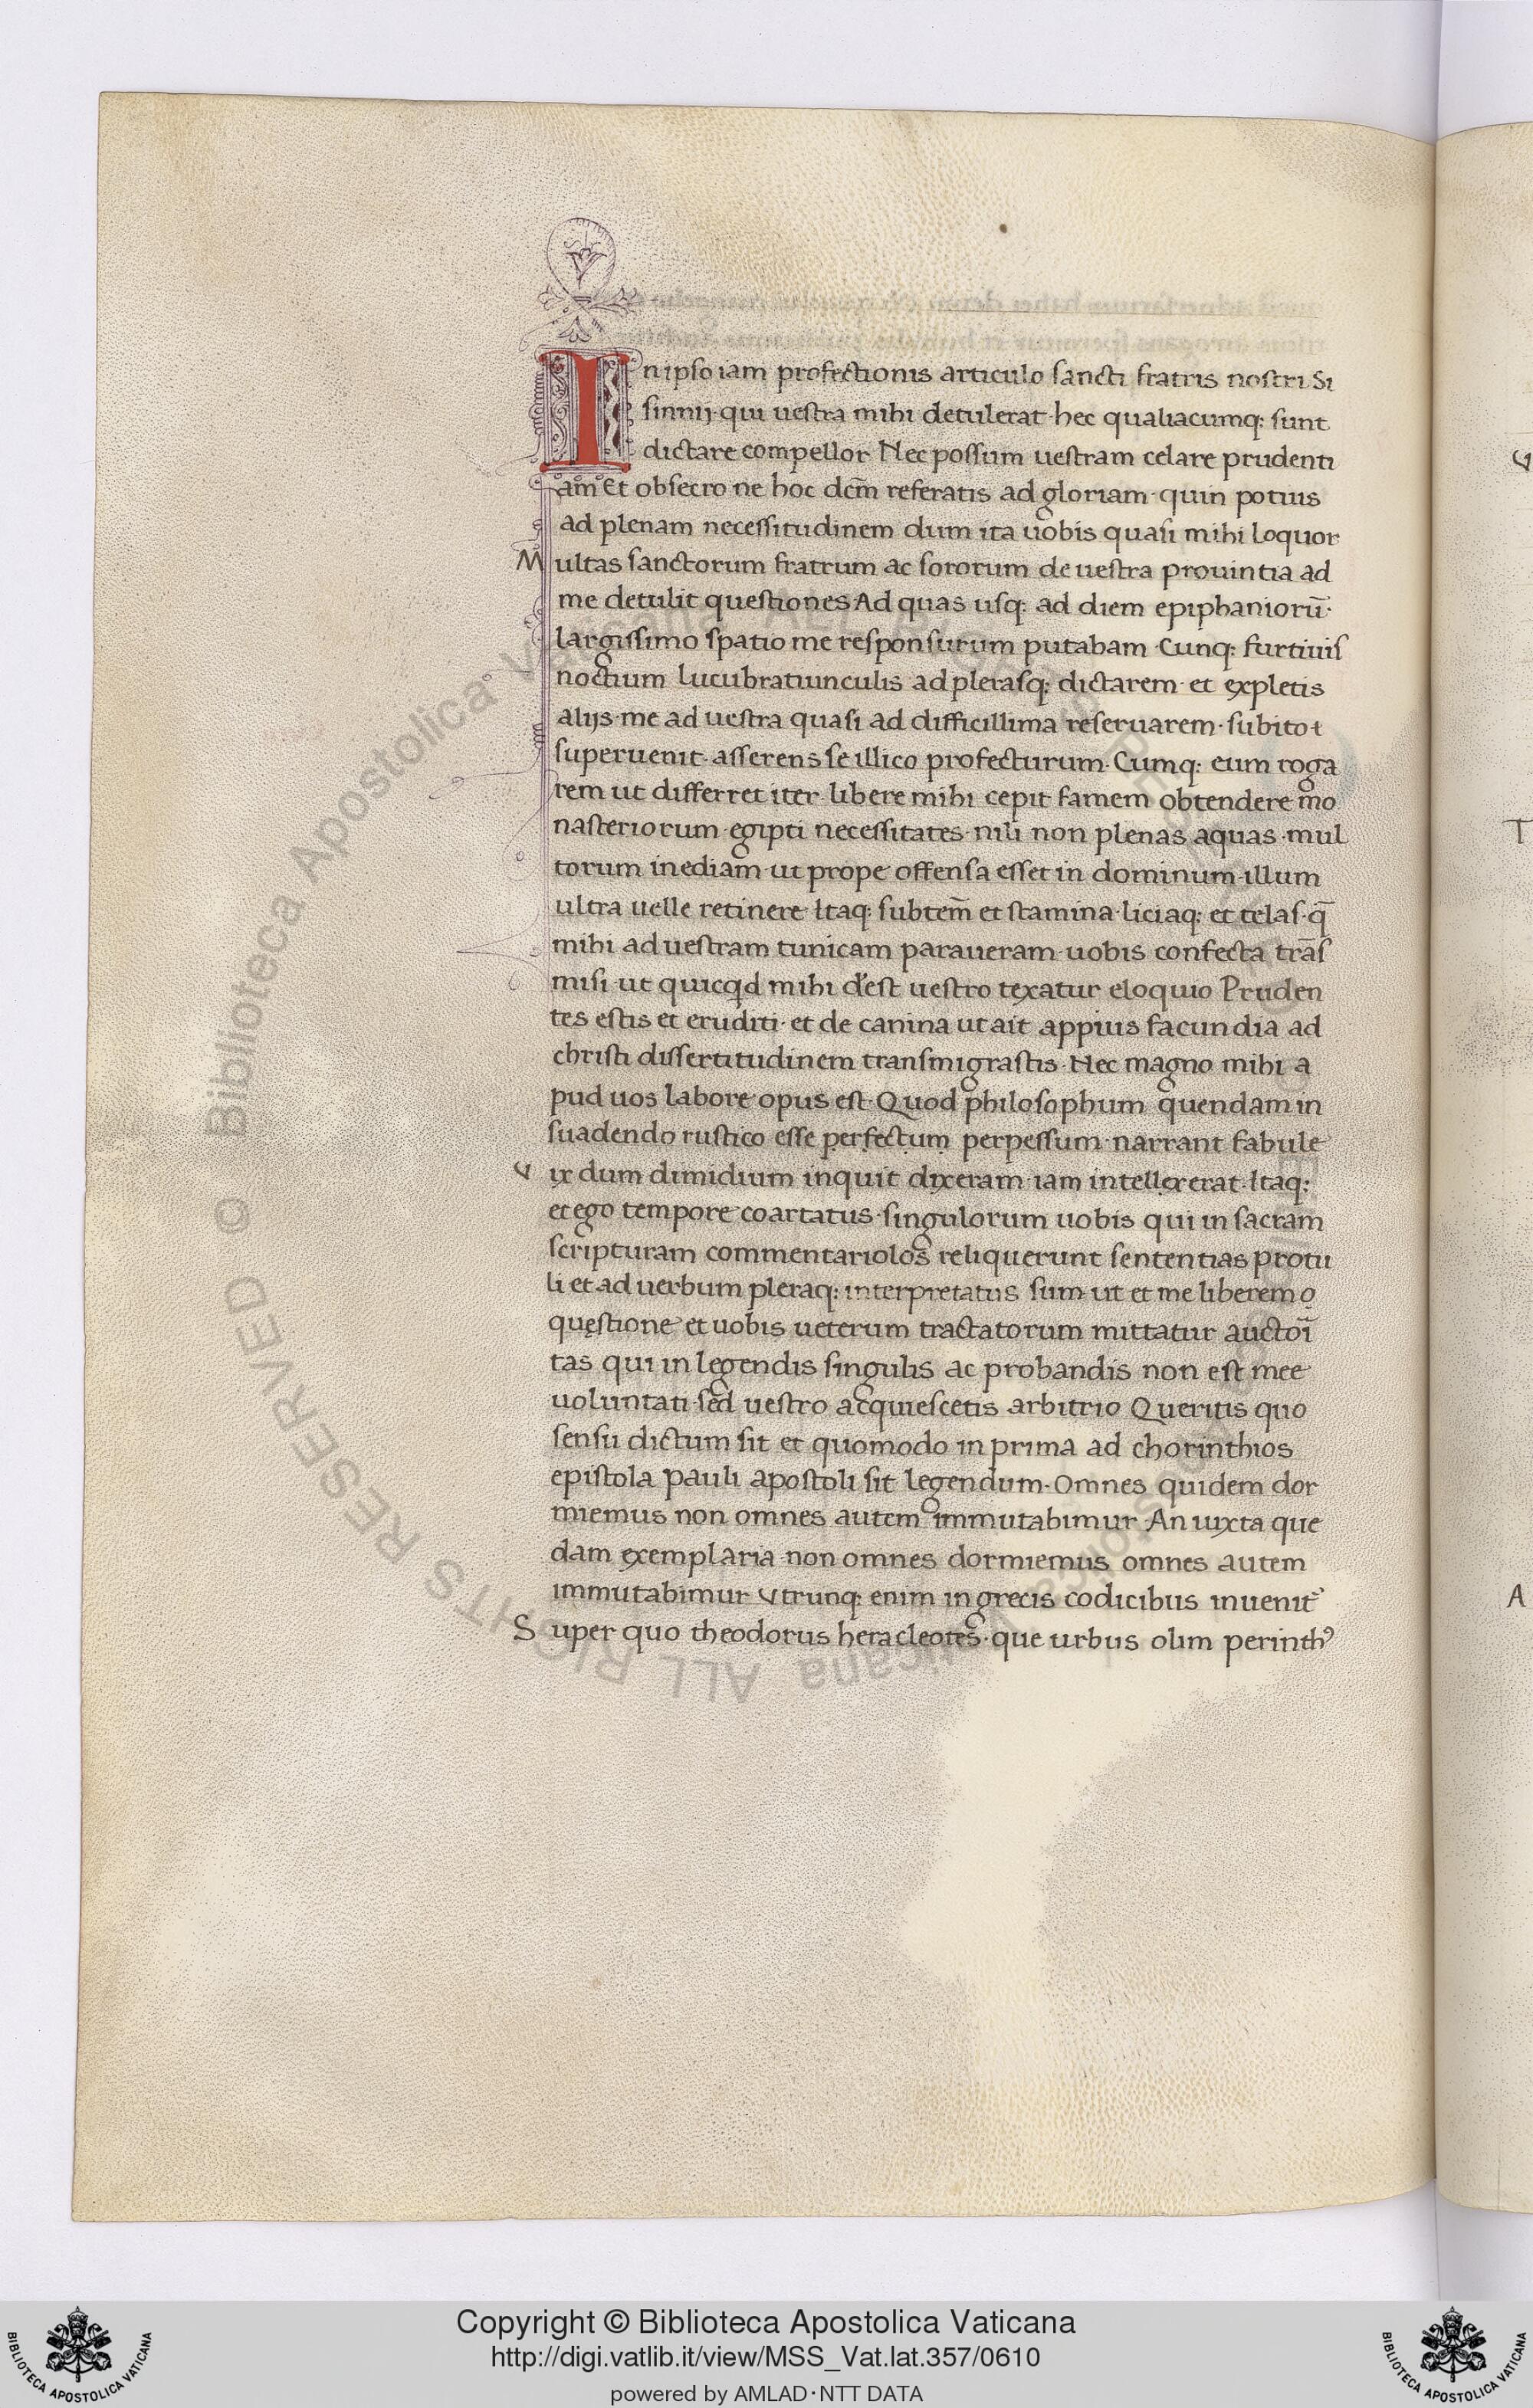 In ipso iam profectionis articulo sancti fratris nostri Si
sinnij· qui uestra mihi detulerat· hec qualiacumq; sunt
dictare compellor Nec possum uestram celare prudenti
am Et obsecro ne hoc dcm̄ referatis ad gloriam· quin potuis
ad plenam necessitudinem dum ita uobis quasi mihi loquor
Multas sanctorum fratrum ac sororum de uestra prouintia ad
me detulit questiones Ad quas usq; ad diem epiphaniorū·
largissimo spatio me responsurum putabam Cunq; furtiuis
noctium lucubratiunculis ad plerasq; dictarem· et expletis
alijs· me ad uestra quasi ad difficillima reseruarem· subito
superuenit· asserens se illico profecturum· Cumq; eum roga
rem ut differret iter· libere mihi cepit famem obtendere mo
nasteriorum· egipti necessitates· nili non plenas aquas· mul
torum inediam· ut prope offensa esset in dominum· illum
ultra uelle retinere Itaq; subtem̄ et stamina· liciaq; et telas· q̄
mihi ad uestram tunicam paraueram· uobis confecta trās
misi· ut quicqd mihi dest uestro texatur eloquio Pruden
tes estis et eruditi· et de canina ut ait appius facundia ad
christi dissertitudinem transmigrastis· Nec magno mihi a
pud uos labore opus est· Quod philosophum quendam in
suadendo rustico esse perfectum perpessum· narrant fabule
Vix dum dimidium inquit dixeram· iam intellexerat· Itaq;
et ego tempore coartatus· singulorum uobis qui in sacram
scripturam commentariolos reliquerunt sententias protu
li et ad uerbum pleraq; interpretatus sum· ut et me liberem
questione et uobis ueterum tractatorum mittatur auctorī
tas qui in legendis singulis ac probandis non est mee
uoluntati· sed uestro acquiescetis arbitrio Queritis quo
sensu dictum sit et quomodo in prima ad chorinthios
epistola pauli apostoli sit legendum· Omnes quidem dor
miemus non omnes autem immutabimur An iuxta que
dam exemplaria non omnes dormiemus omnes autem
immutabimur Vtrunq; enim in grecis codicibus inuenit᷑
Super quo theodorus heracleotes· que urbus olim perinthꝰ
Copyright © Biblioteca Apostolica Vaticana
http://digi.vatlib.it/view/MSS_Vat.lat.357/0610
powered by AMLAD·NTT DATA